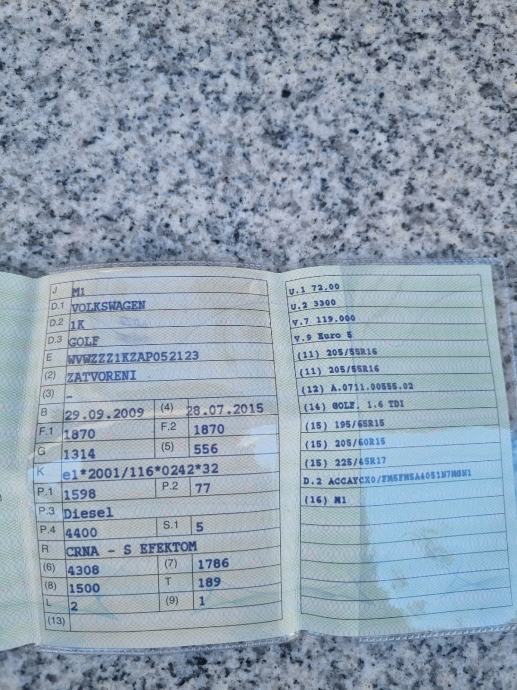 J M1
D.1 VOLKSWAGEN
D.2 1K
D.3 GOLF
E WVWZZZ1KZAP052123
(2) ZATVORENI
(3) -
B 29.09.2009 (4) 28.07.2015
F.1 1870 F.2 1870
G 1314 (5) 556
K e1*2001/116*0242*32
P.1 1598 P.2 77
P.3 Diesel
P.4 4400 S.1 5
R CRNA - S EFEKTOM
(6) 4308 (7) 1786
(8) 1500 T 189
L 2 (9) 1
(13)
U.1 72.00
U.2 3300
V.7 119.000
V.9 Euro 5
(11) 205/55R16
(11) 205/55R16
(12) A.0711.00555.02
(14) GOLF, 1.6 TDI
(15) 195/65R15
(15) 205/60R15
(15) 225/45R17
D.2
(16) M1